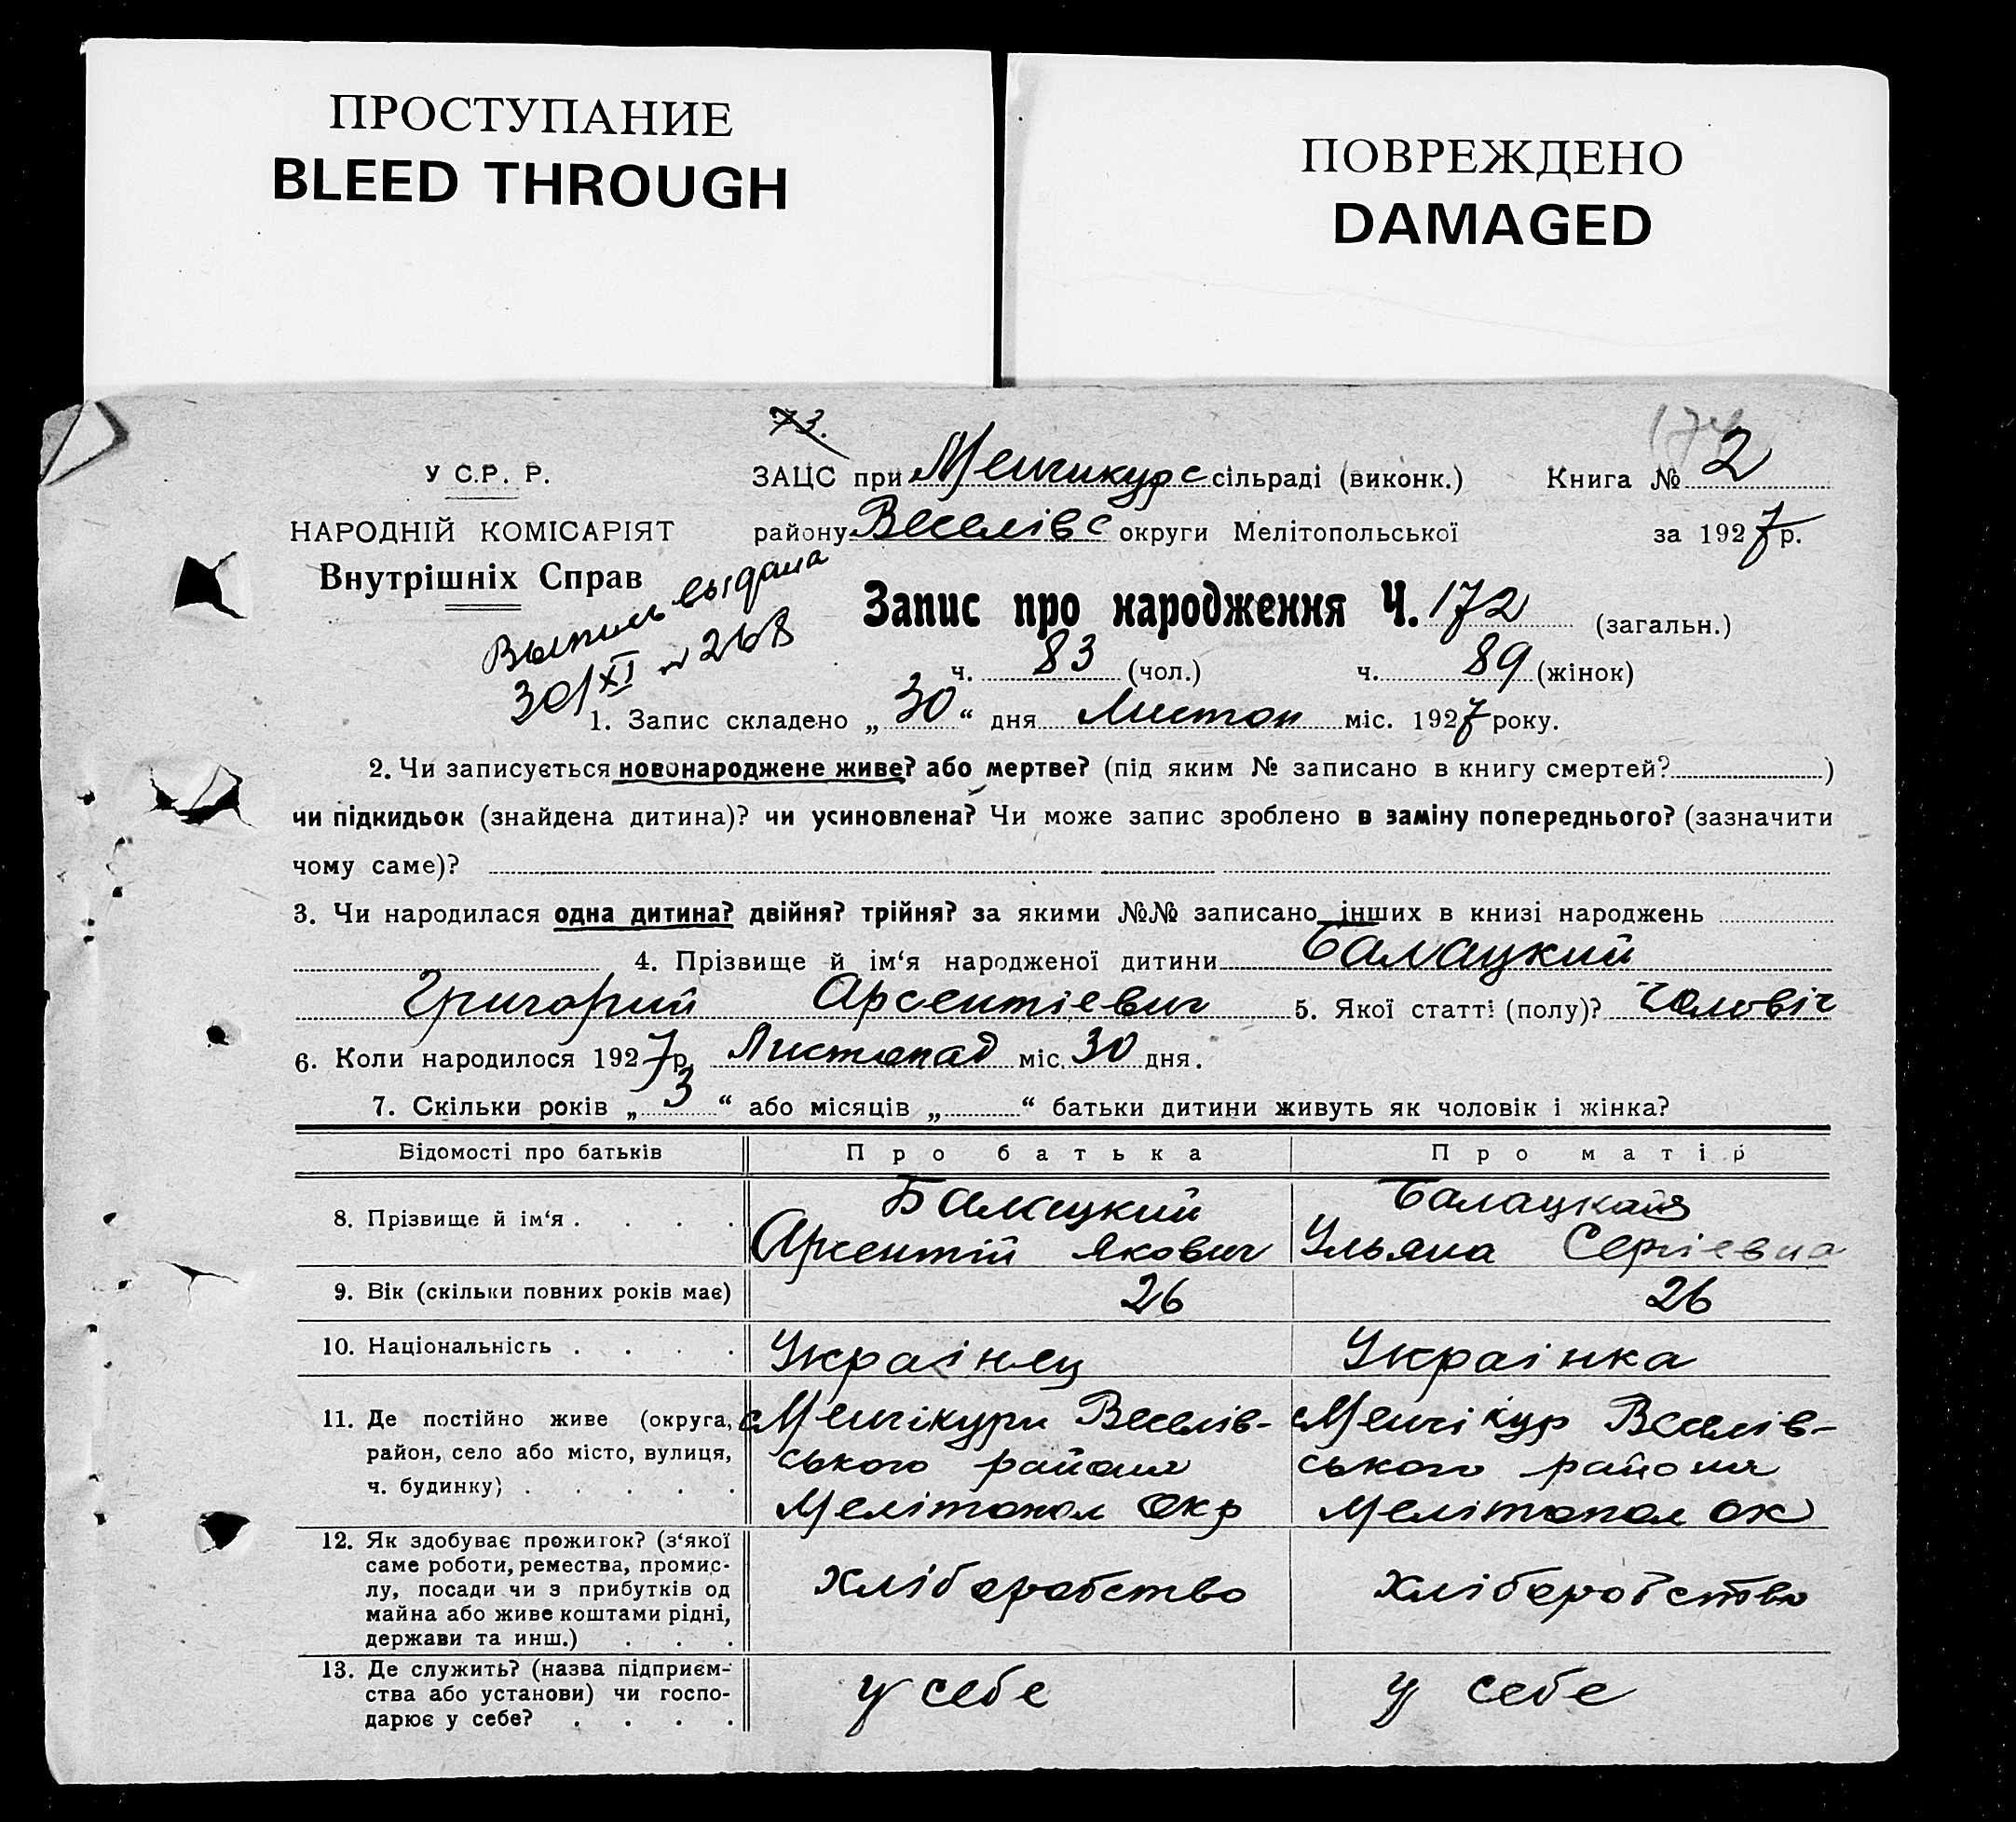 ПРОСТУПАНИЕ
BLEED THROUGH
ПОВРЕЖДЕНО
DAMAGED
73.
174
У С.Р. Р.
ЗАЦС при Менчикурс сільраді (виконк.) Книга № 2
НАРОДНІЙ КОМІСАРІЯТ
району Веселівс округи Мелітопольської за 1927 р.
Внутрішніх Справ
Выпись выдана
30/XI № 268
Запис про народження Ч. 172 (загальн.)
ч. 83 (чол.) ч. 89 (жінок)
1. Запис складено „ 30 “ дня Листоп міс. 1927 року.
2. Чи записується новонароджене живе? або мертве? (під яким № записано в книгу смертей? )
чи підкидьок (знайдена дитина)? чи усиновлена? Чи може запис зроблено в заміну попереднього? (зазначити
чому саме)?
3. Чи народилася одна дитина? двійня? трійня? за якими №№ записано інших в книзі народжень
4. Прізвище й ім‘я народженої дитини Балацкий
Григорий Арсентіевич 5. Якої статті (полу)? Чоловіч
6. Коли народилося 1927 р. Листопад міс. 30 дня.
7. Скільки років „ 3 “ або місяців „ “ батьки дитини живуть як чоловік і жінка?
Відомості про батьків Про батька Про матір
8. Прізвище й ім‘я . . . . Балацкий Балацкая
Арсентій Якович Ульяна Сергіевна
9. Вік (скільки повних років має) 26 26
10. Національність . . . . Украінец Украінка
11. Де постійно живе (округа, Менчікури Веселів- Менчікур Веселів-
район, село або місто, вулиця, ського района ського района
ч. будинку) . . . . . Мелітопол Окр Мелітопол ок
12. Як здобуває прожиток? (з‘якої
саме роботи, ремества, промис-
лу, посади чи з прибутків од хліборобство хліборобство
майна або живе коштами рідні,
держави та инш.) . . .
13. Де служить? (назва підприєм-
ства або установи) чи госпо- у себе у себе
дарює у себе? . . . .